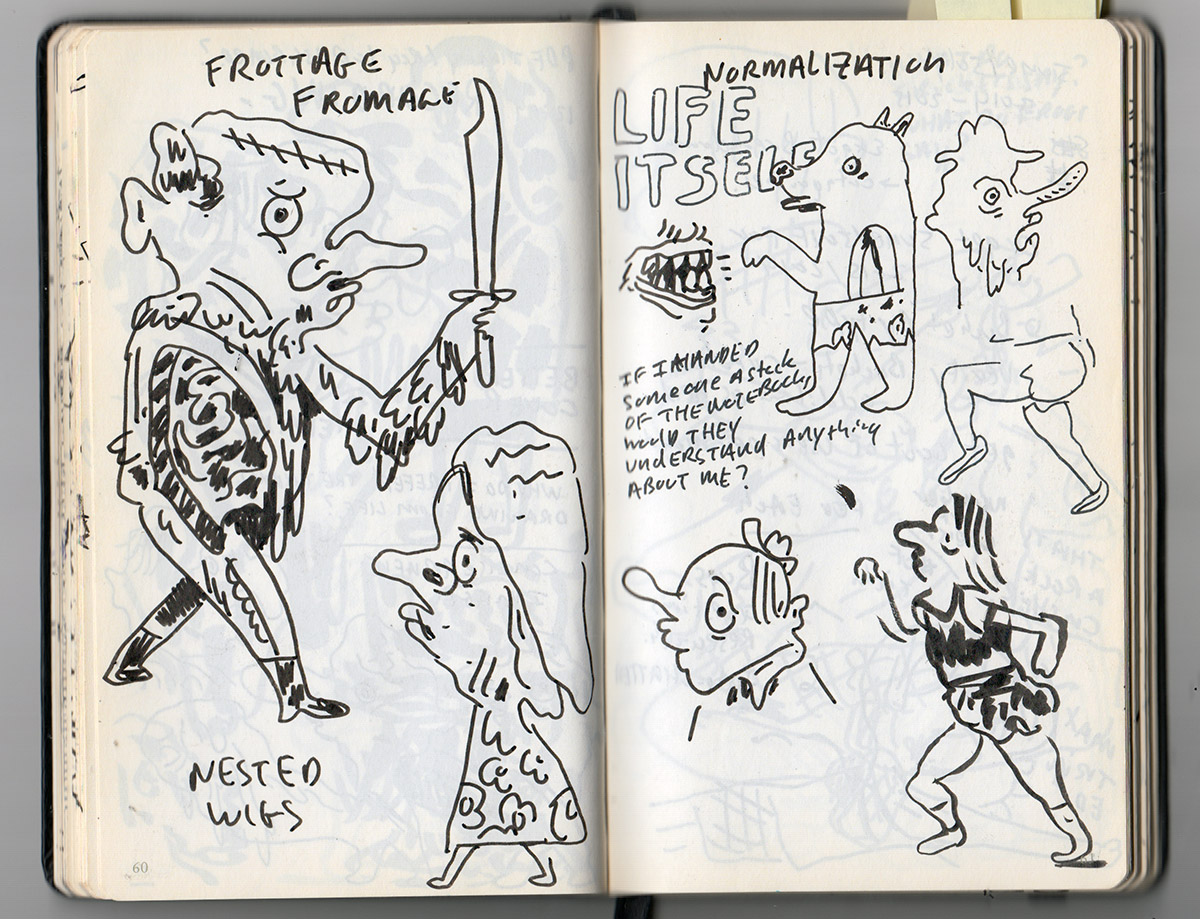 FROTTAGE
FROMAGE
NESTED
WIGS
60
NORMALIZATION
LIFE
ITSELF
IF I HANDED
someone A stack
OF THE NOTEBOOKS
WOULD THEY
UNDERSTAND Anything
ABOUT ME?